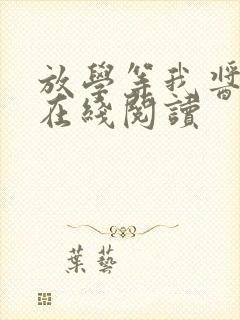 放學等我 醬
在綫閱讀
葉藝